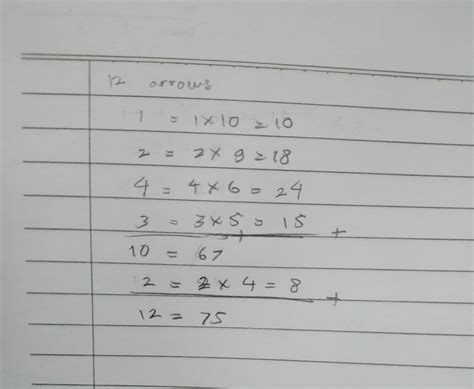 12 arrows
1 = 1×10 = 10
2 = 2×9 = 18
4 = 4×6 = 24
3 = 3×5 = 15 +
10 = 67
2 = 2×4 = 8 +
12 = 75